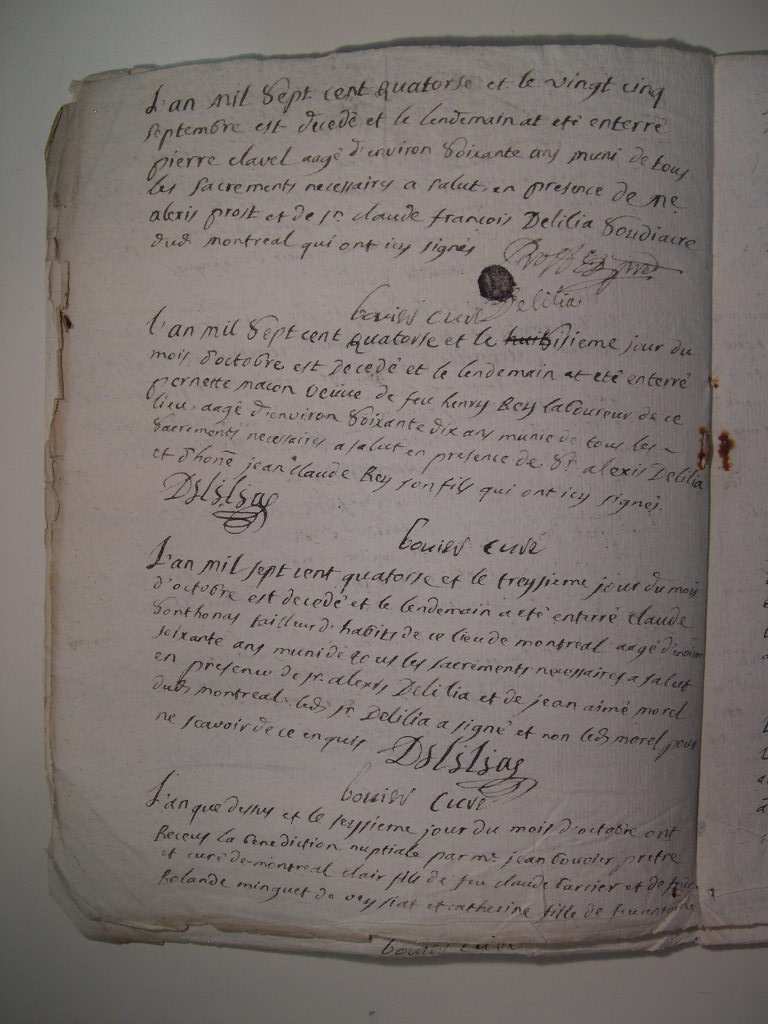 L'an mil sept cent quatorse et le vingt cinq
septembre est ducedé et le lendemain at eté enterré
pierre clavel aagé d'environ soixante ans muni de tous
les sacrements necessaires a salut en presence de me.
alexis prost et de sr. claude francois Delilia soudiacre
dud montreal qui ont icy signés
Delilia
bouier curé
L'an mil sept cent quatorse et le huitisieme jour du
mois d'octobre est decedé et le lendemain at eté enterré
pernette macon veuve de feu henry Bey laboureur de ce
lieu aagé d'environ soixante dix ans munie de tous les
sacrements necessaires a salut en presence de Sr alexis Delilia
et d'honē jean claude Bey son fils qui ont icy signés.
Delilia
bouier curé
L'an mil sept cent quatorse et le treysieme jour du mois
d'octobre est decedé et le lendemain a eté enterré claude
sonthonas tailleur d'habits de ce lieu de montreal aagé d'environ
soixante ans muni de tous les sacrements necessaires a salut
en presence de sr. alexis Delilia et de jean aimé morel
dud montreal led sr Delilia a signé et non led morel pour
ne scavoir de ce enquis Delilia
bouier curé
L'an que dessus et le seysieme jour du mois d'octobre ont
Receus la benediction nuptiale par mr. jean bouvier pretre
et curé de montreal clair fils de feu claude Carrier et de
Rolande minguet de veysiat et catherine fille de feu
bouier curé